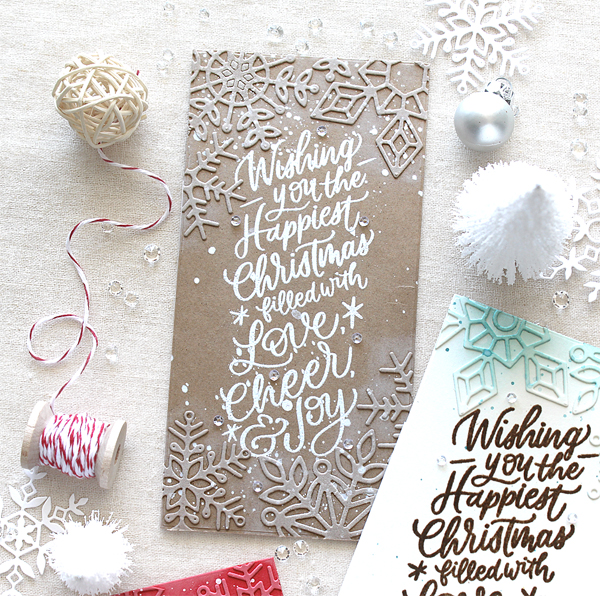 Wishing
you the
Happiest
Christmas
filled with
Love,
Cheer,
& Joy
Wishing
you the
Happiest
Christmas
filled with